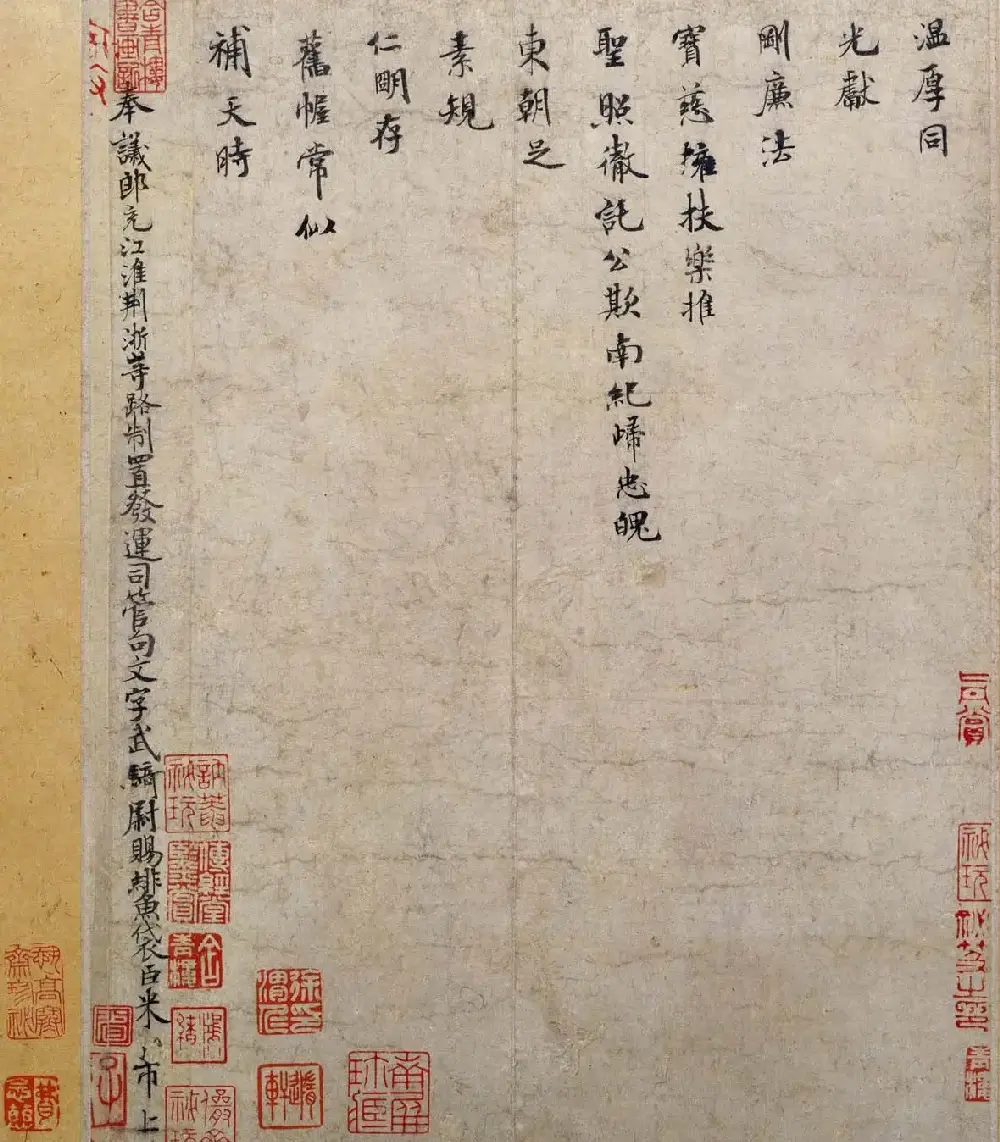 溫厚同
光獻
剛廉法
寶慈擁扶樂推
聖照徹託公欺南紀歸忠魄
東朝足
素規
仁明存
舊幄常似
補天時
奉議郎充江淮荊浙等路制置發運司管句文字武騎尉賜緋魚袋臣米芾上